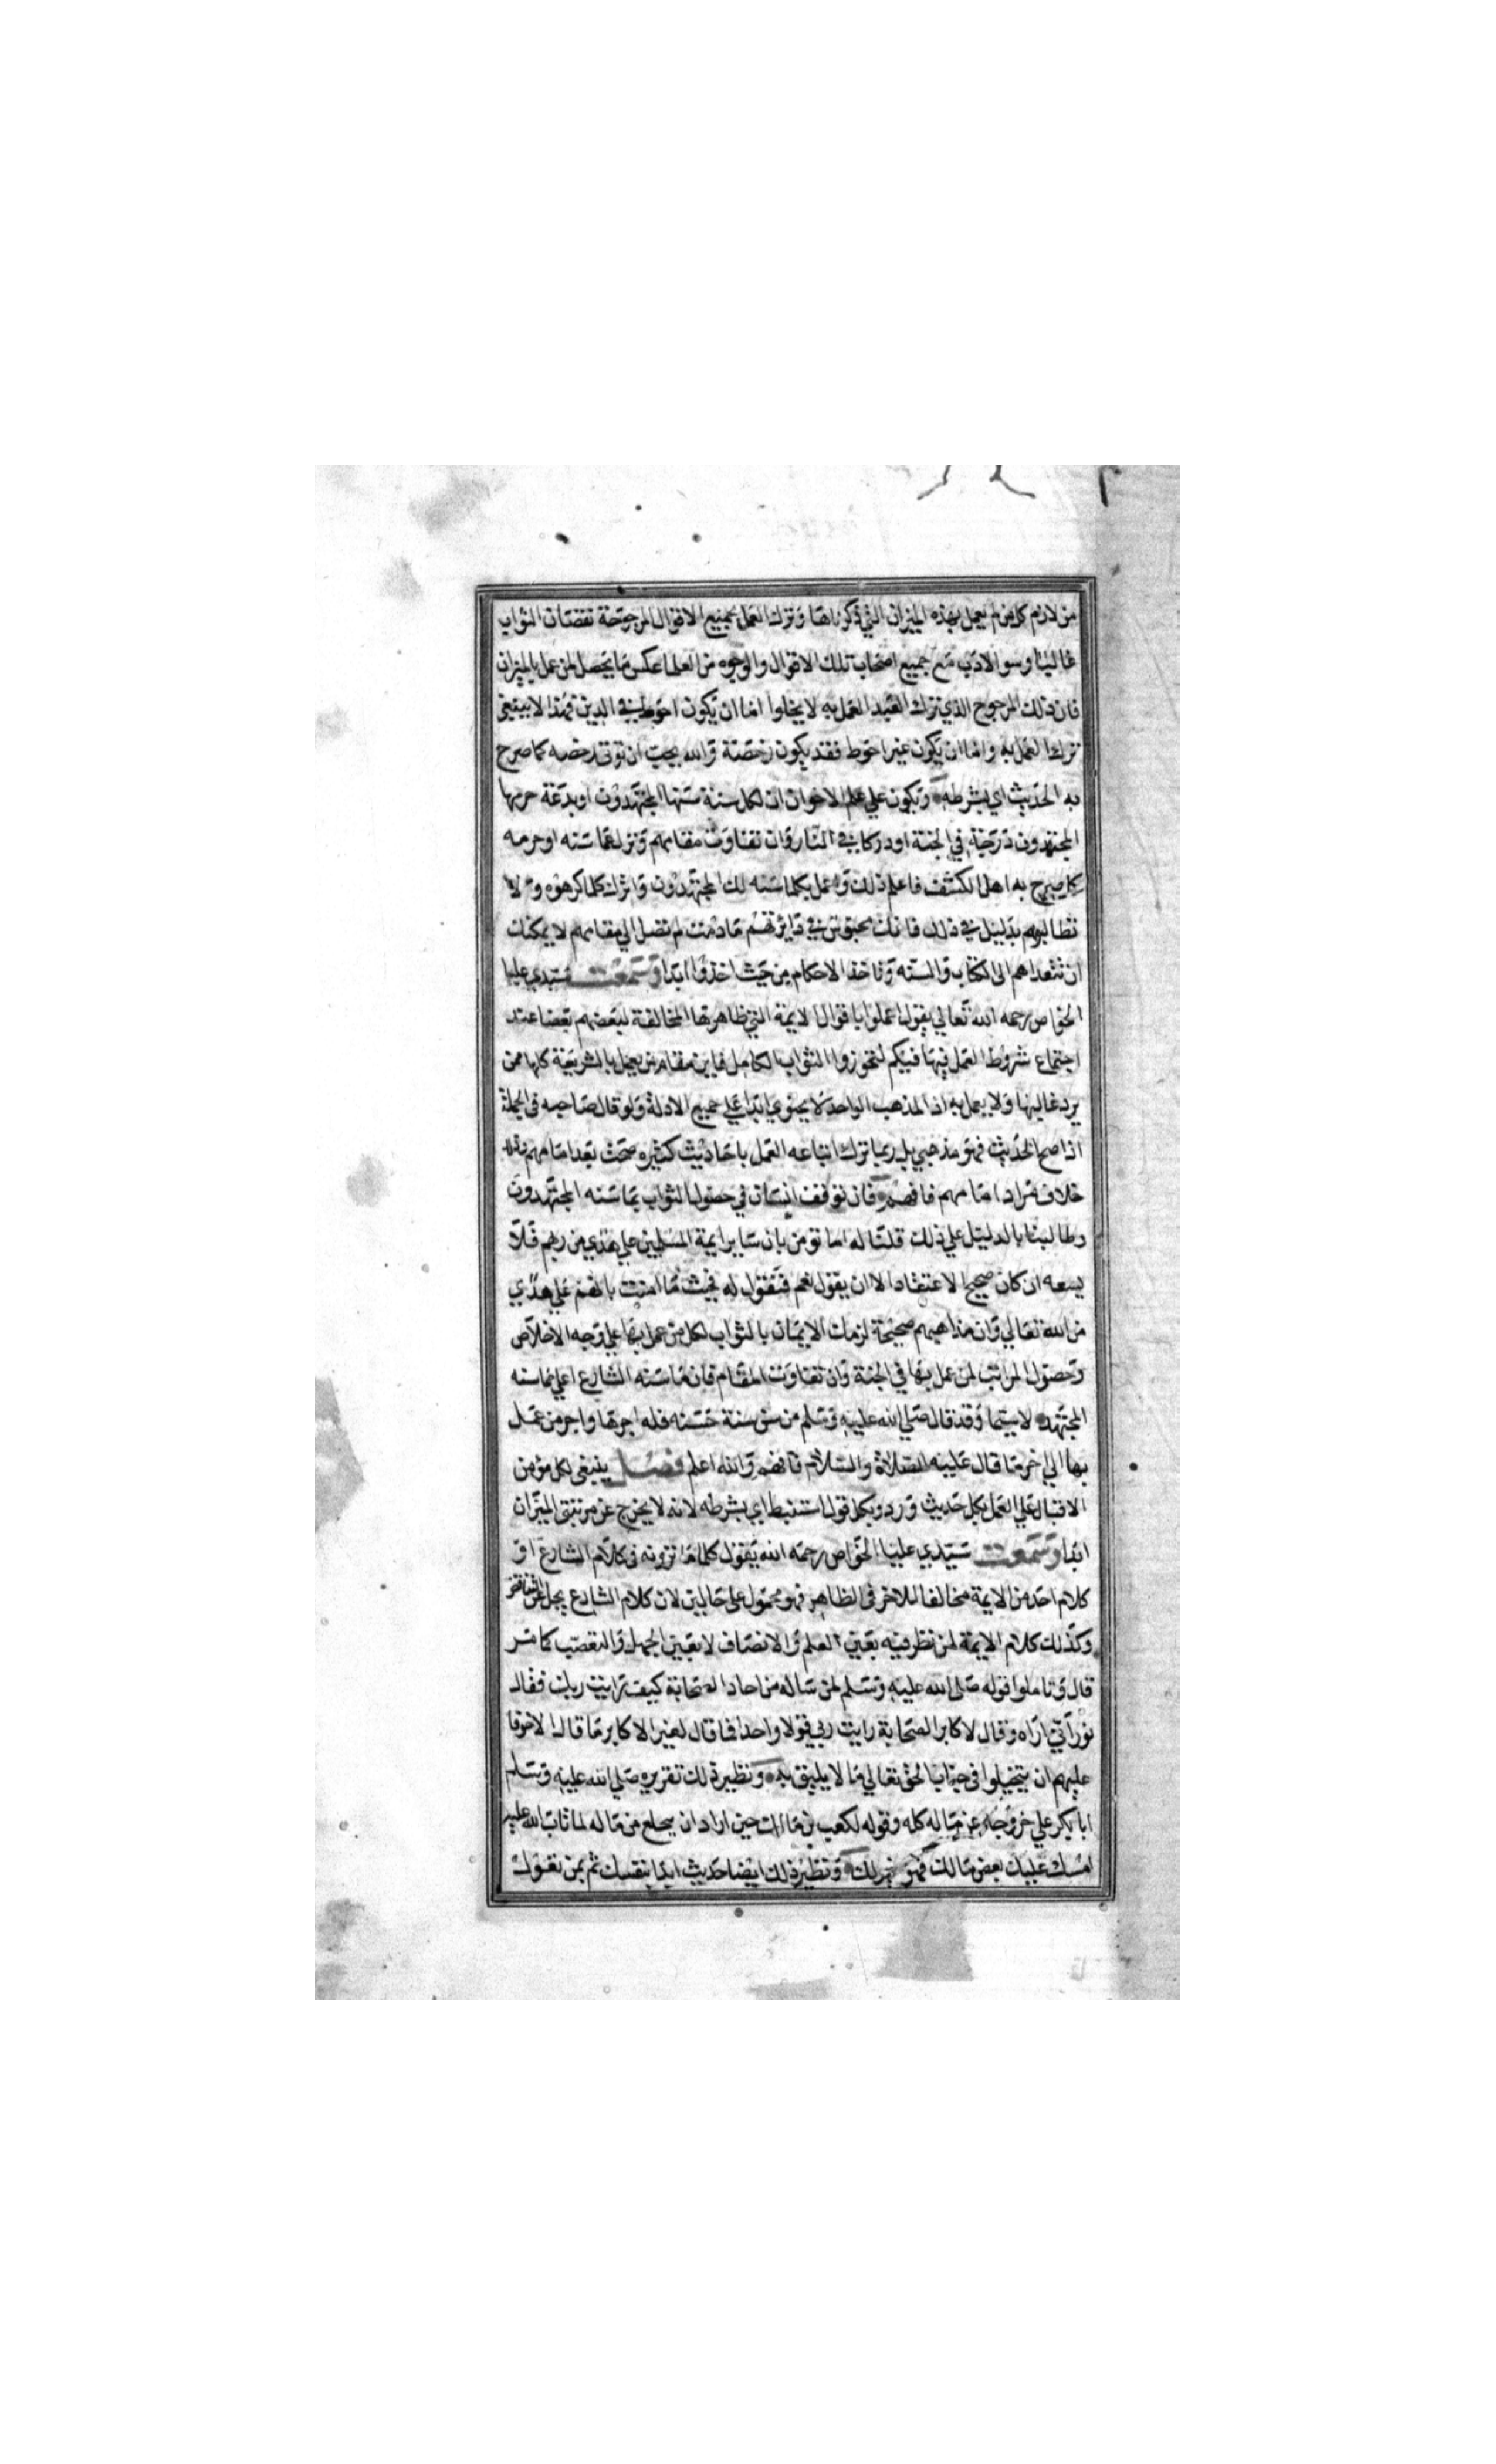 من لازم كل من لم يعمل بهذه الميزان التي ذكرناها وترك العمل بجميع الاقوال المرجوحة نقصان الثواب
غالبا وسو الادب مع جميع اصحاب تلك الاقوال والوجوه من العلما عكس ما يحصل لمن عمل بالميزان
فان ذلك المرجوح الذي ترك العبد العمل به لا يخلوا اما ان يكون احوط في الدين فهذا لا ينبغي
ترك العمل به واما ان يكون غير احوط فقد يكون رخصة والله يحب ان توتى رخصه كما صرح
به الحديث اي بشرطه وتكون علي علم الاخوان ان لكل سنة سنها المجتهدون او بدعة حرمها
المجتهدون درجة في الجنة او دركا في النار وان تفاوت مقامهم ونزل عما سنه او حرمه
كما صرح به اهل الكشف فاعلم ذلك واعمل بكلما سنه لك المجتهدون واترك كلما كرهوه ولا
تطالبهم بدليل في ذلك فانك محبوس في دايرتهم ما دمت لم تصل الي مقامهم لا يمكنك
ان تتعداهم الى الكتاب والسنه وتاخذ الاحكام من حيث اخذوا ابدا وسمعت سيدي عليا
الخواص رحمه الله تعالي يقول اعملوا باقوال الايمة التي ظاهرها المخالفة لبعضهم بعضا عند
اجتماع شروط العمل فيها فيكم لتحوزوا الثواب الكامل فاين مقام من يعمل بالشريعة كلها ممن
يرد غالبها ولا يعمل به اذ المذهب الواحد لا يحتوي ابدا علي جميع الادلة ولو قال صاحبه في الجملة
اذا صح الحديث فهو مذهبي بل ربما ترك اتباعه العمل باحاديث كثيره صحت بعد امامهم وذلك
خلاف مراد امامهم فافهم فان توقف انسان في حصول الثواب بما سنه المجتهدون
وطالبنا بالدليل علي ذلك قلنا له اما تومن بان ساير ايمة المسلمين علي هدي من ربهم فلا
يسعه ان كان صحيح الاعتقاد الا ان يقول نعم فنقول له فحيث ما امنت بانهم علي هدي
من الله تعالي وان مذاهبهم صحيحة لزمك الايمان بالثواب لكل من عمل بها علي وجه الاخلاص
وحصول المراتب لمن عمل بها في الجنة وان تفاوت المقام فان ما سنه الشارع اعلي مما سنه
المجتهد لا سيما وقد قال صلي الله عليه وسلم من سن سنة حسنه فله اجرها واجر من عمل
بها الي اخر ما قال عليه الصلاة والسلام فافهم والله اعلم فصل ينبغي لكل مومن
الاقبال علي العمل بكل حديث ورد وبكل قول استنبط اي بشرطه لانه لا يخرج عن مرتبتي الميزان
ابدا وسمعت سيدي عليا الخواص رحمه الله يقول كلما ترونه في كلام الشارع او
كلام احد من الايمة مخالفا للاخر في الظاهر فهو محمول على حالين لان كلام الشارع يجل عن التناقض
وكذلك كلام الايمة لمن نظر فيه بعين العلم والانصاف لا بعين الجهل والتعصب كما مر
قال وتاملوا قوله صلى الله عليه وسلم لمن ساله من احاد الصحابة كيف رايت ربك فقال
نوراني اراه وقال لاكابر الصحابة رايت ربي قولا واحدا فما قال لغير الاكابر ما قال الا خوفا
عليهم ان يتخيلوا في جناب الحق تعالي ما لا يليق به ونظير ذلك تقريره صلي الله عليه وسلم
ابا بكر علي خروجه عن ماله كله وقوله لكعب بن مالك حين اراد ان ينخلع من ماله لما تاب الله عليه
امسك عليك بعض مالك فهو خير لك ونظير ذلك ايضا حديث ابدا بنفسك ثم بمن تعول